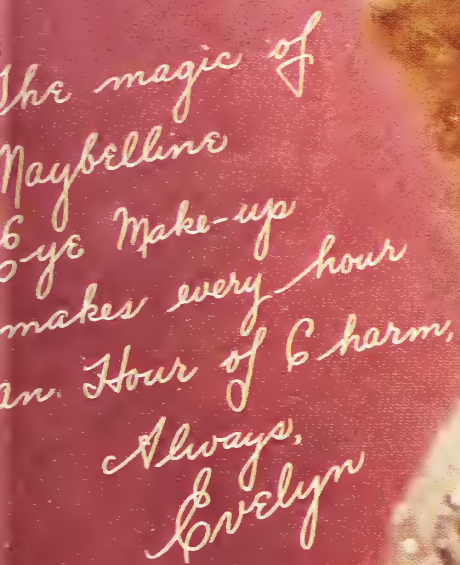 The magic of
Maybelline
Eye Make-up
makes every hour
an Hour of Charm,
Always,
Evelyn